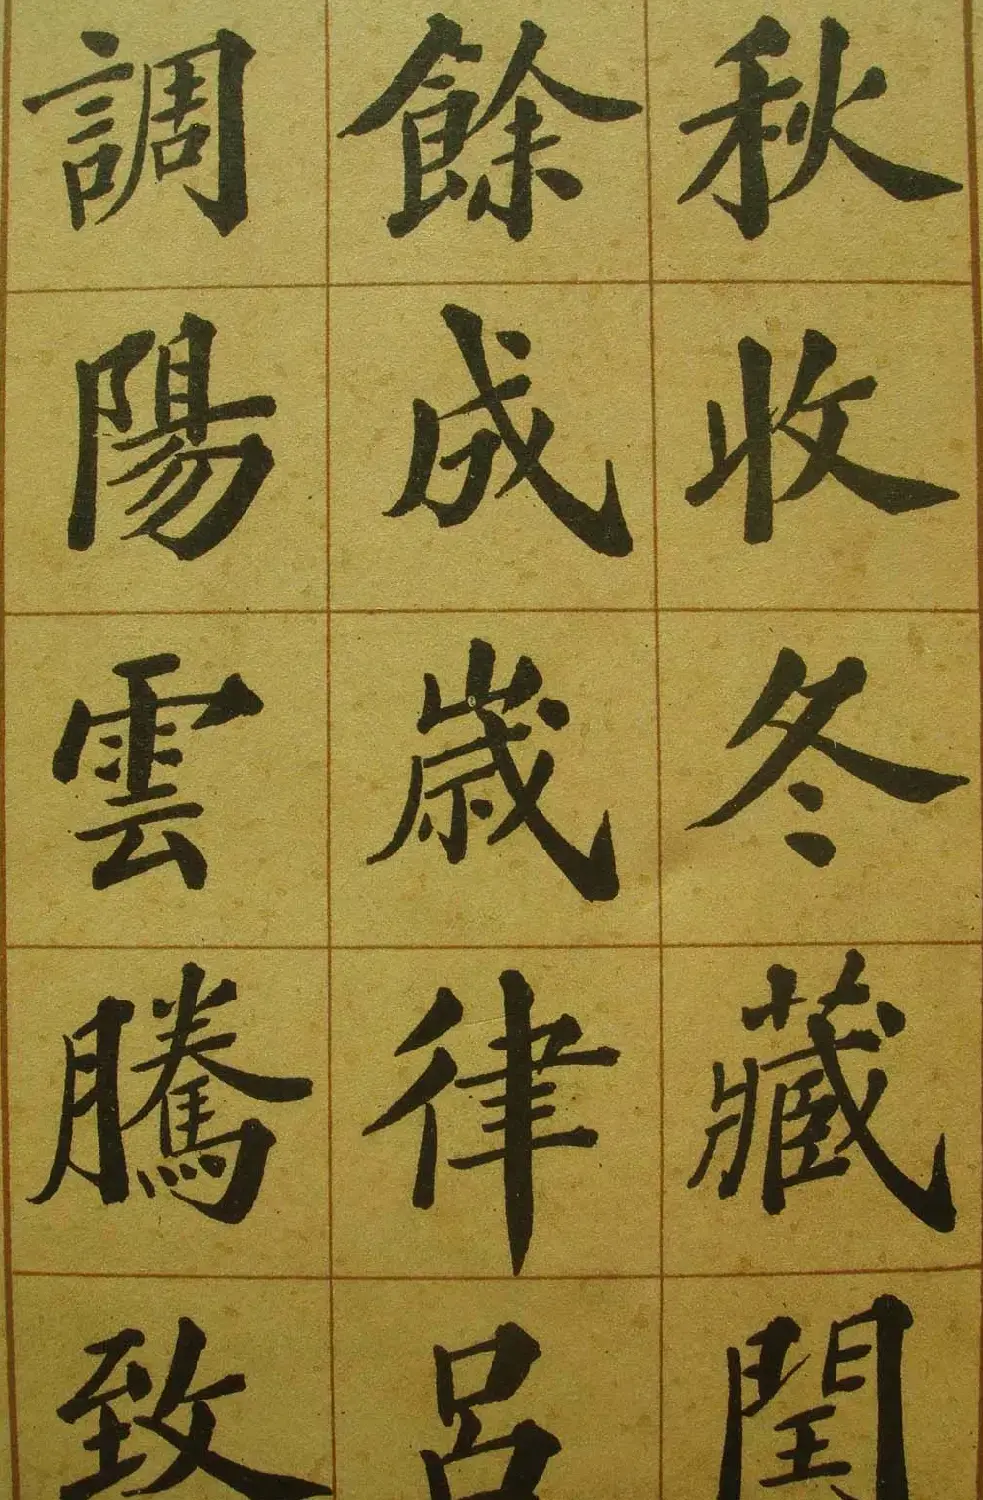 秋收冬藏閏
餘成歳律呂
調陽雲騰致